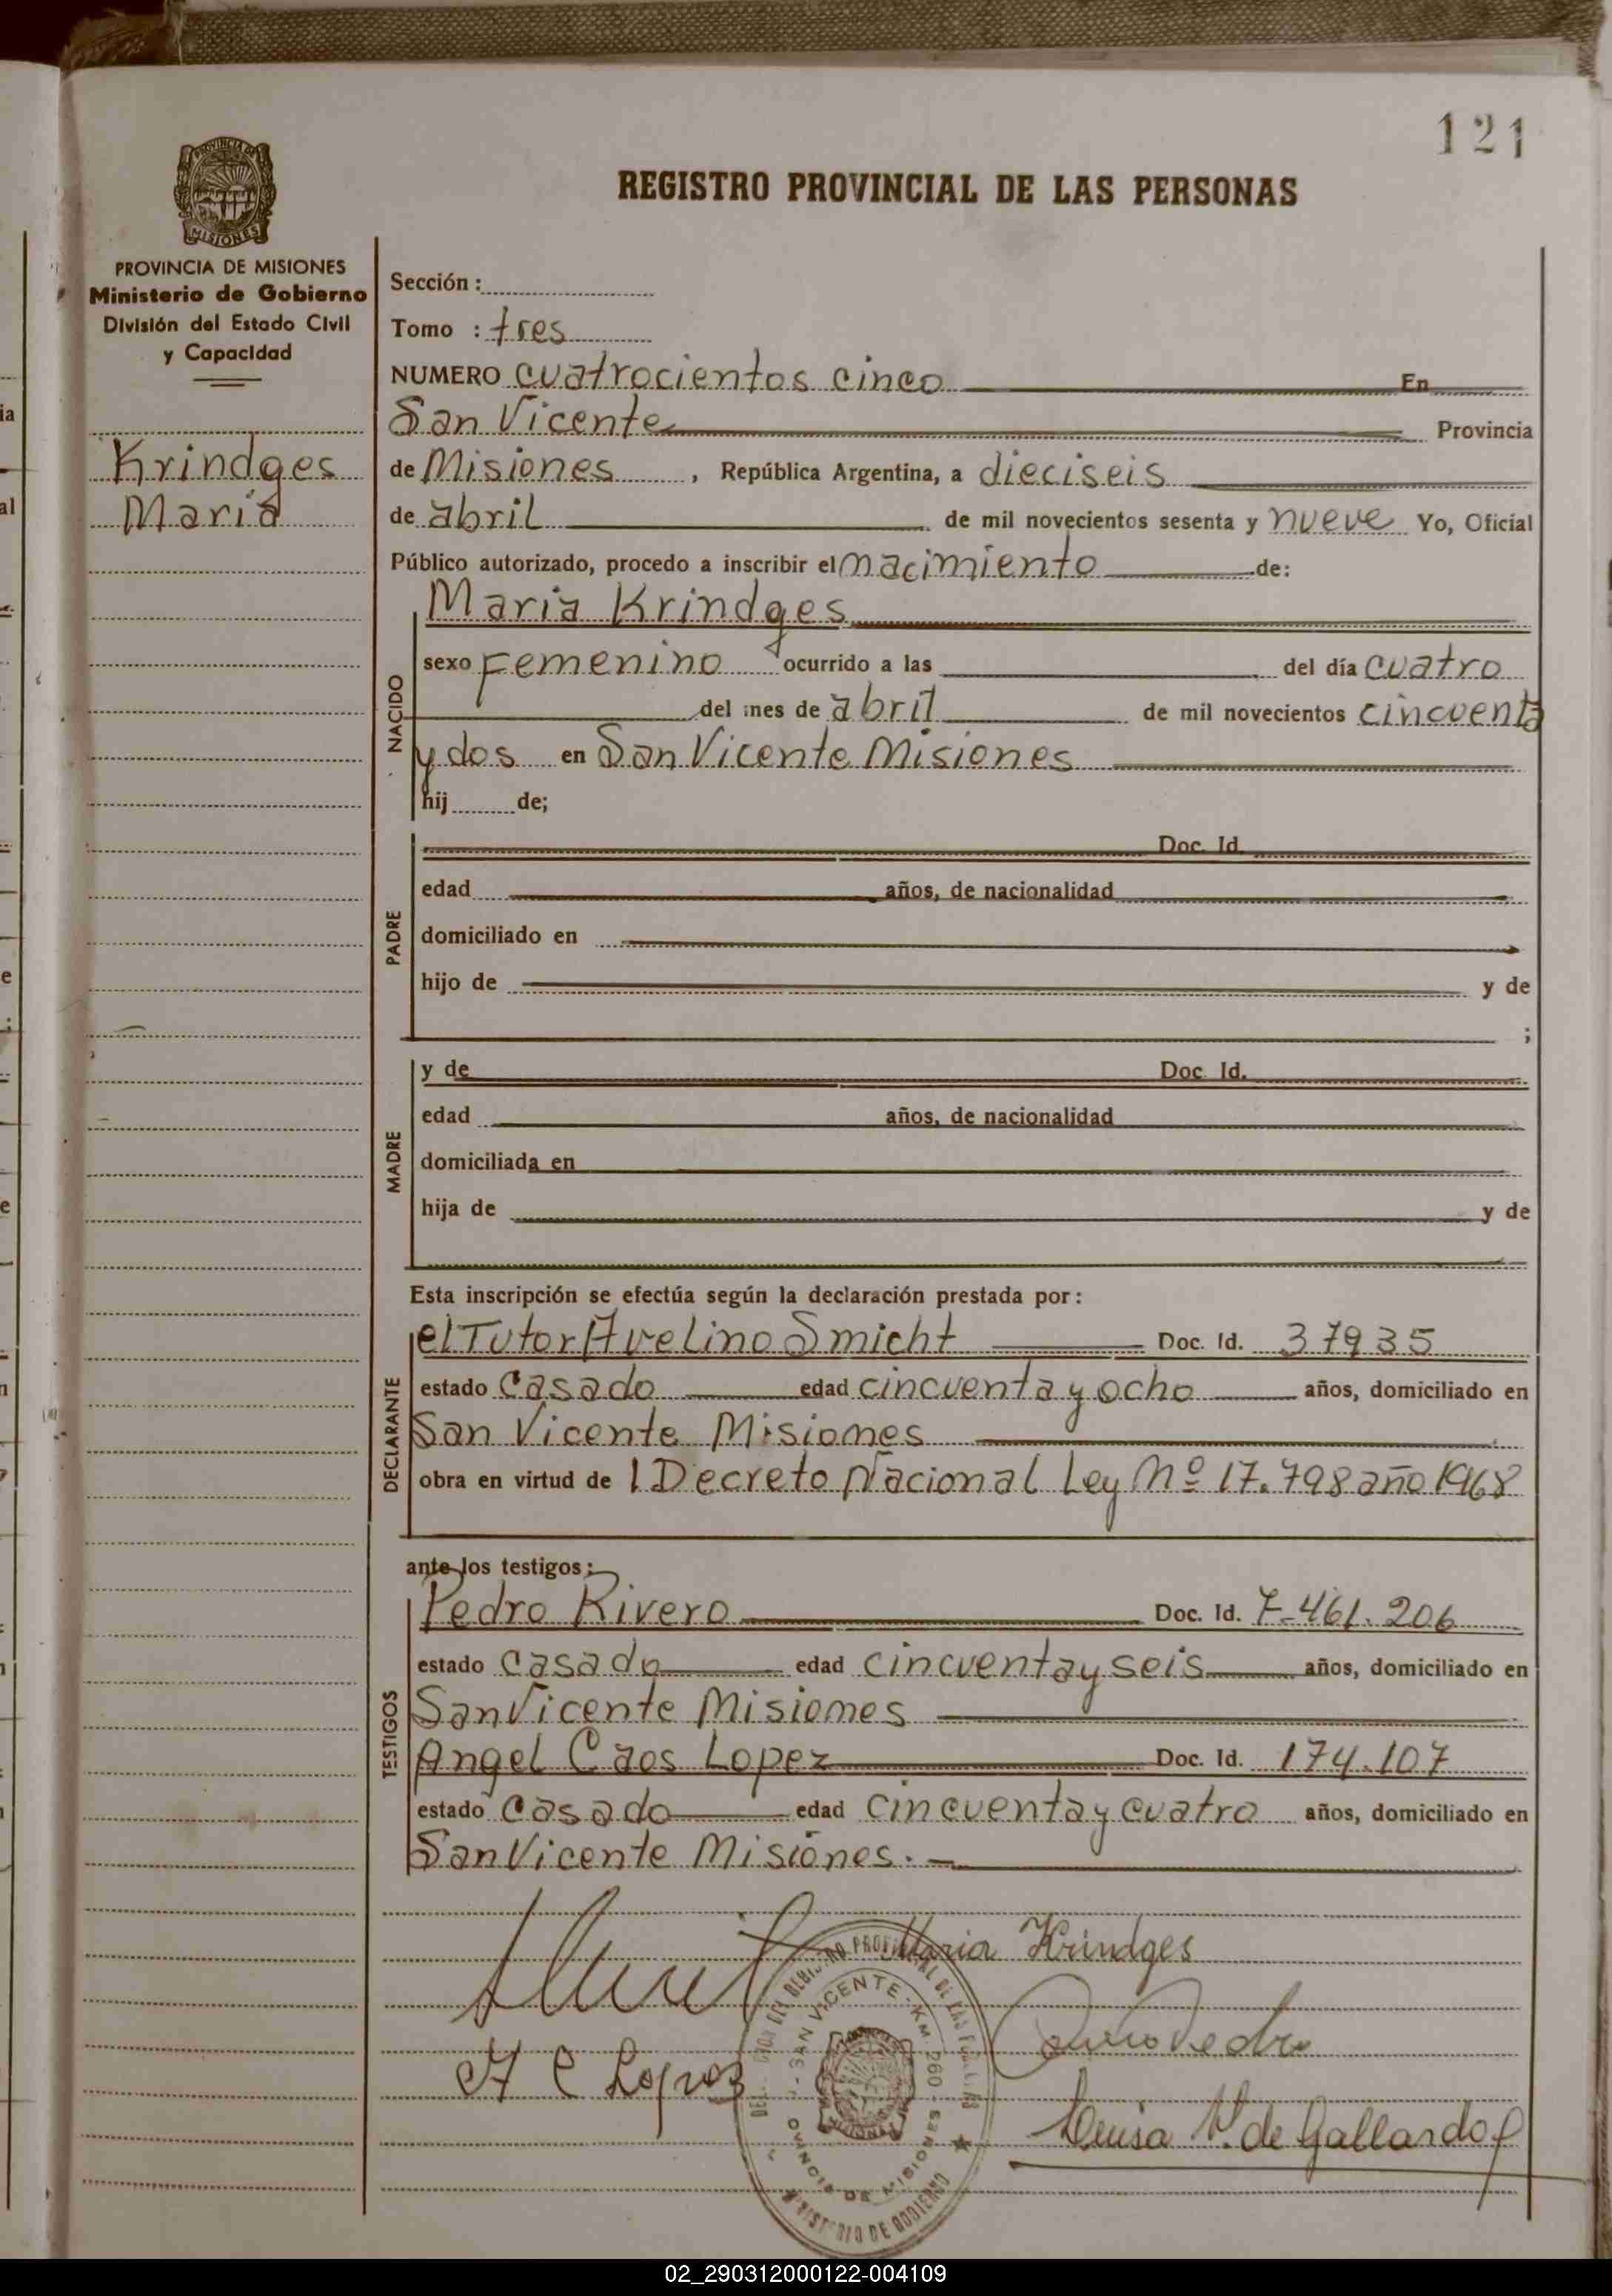 121
REGISTRO PROVINCIAL DE LAS PERSONAS
PROVINCIA DE MISIONES
Ministerio de Gobierno
División del Estado Civil
y Capacidad
Krindges
Maria
Sección :
Tomo : tres
NUMERO cuatrocientos cinco En
San Vicente Provincia
de Misiones , República Argentina, a dieciseis
de abril de mil novecientos sesenta y nueve Yo, Oficial
Público autorizado, procedo a inscribir el nacimiento de:
NACIDO
Maria Krindges
sexo Femenino ocurrido a las del día cuatro
del mes de abril de mil novecientos cincuenta
y dos en San Vicente Misiones
hij de;
PADRE
Doc. Id.
edad años, de nacionalidad
domiciliado en
hijo de y de
;
MADRE
y de Doc. Id.
edad años, de nacionalidad
domiciliada en
hija de y de
Esta inscripción se efectúa según la declaración prestada por:
DECLARANTE
el Tutor Avelino Smicht Doc. Id. 37935
estado Casado edad cincuenta y ocho años, domiciliado en
San Vicente Misiones
obra en virtud de l Decreto Nacional Ley Nº 17.798 año 1968
ante los testigos:
TESTIGOS
Pedro Rivero Doc. Id. 7-461.206
estado casado edad cincuenta y seis años, domiciliado en
San Vicente Misiones
Angel Caos Lopez Doc. Id. 174.107
estado Casado edad cincuenta y cuatro años, domiciliado en
San Vicente Misiones.-
Maria Krindges
A C Lopez
SAN VICENTE - KM. 260 -
MISIONES
MINISTERIO DE GOBIERNO
de Gallardo
02_290312000122-004109